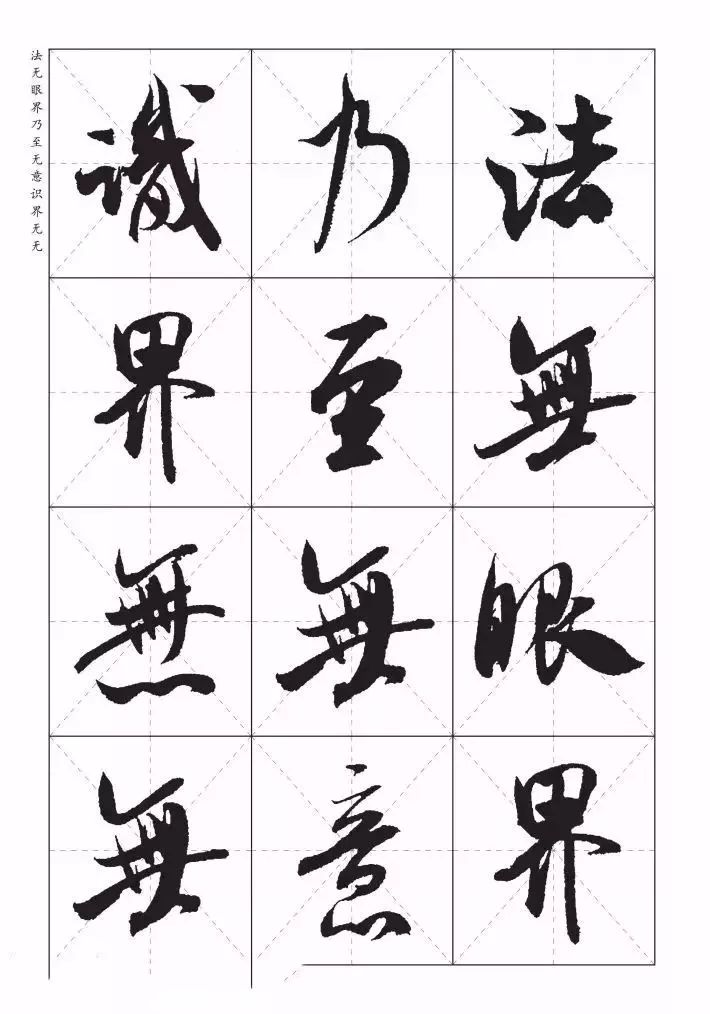 法無眼界
乃至無意
識界無無
法无眼界乃至无意识界无无